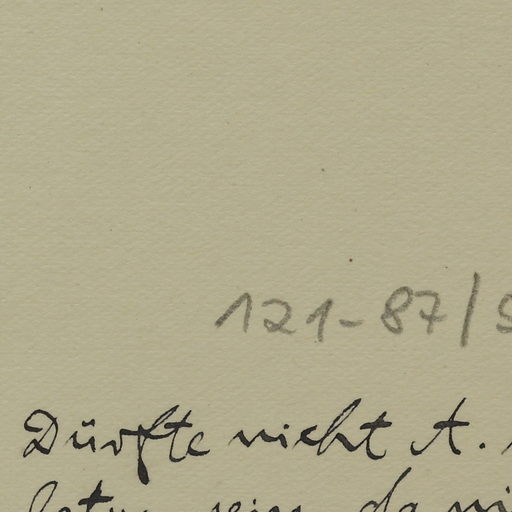 121-87/5
Dürfte nicht A.
sein, da